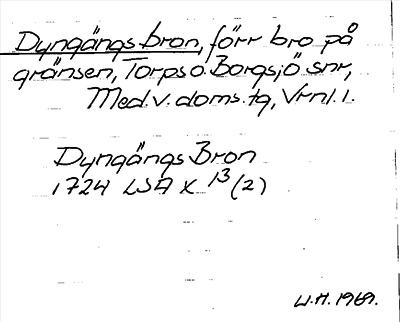 Dyngängsbron, förr bro på
gränsen, Torps o. Borgsjö snr,
Med. v. doms. tg, Vrnl. l.
Dyngängs Bron
1724 LSA X 13 (2)
W.H. 1969.